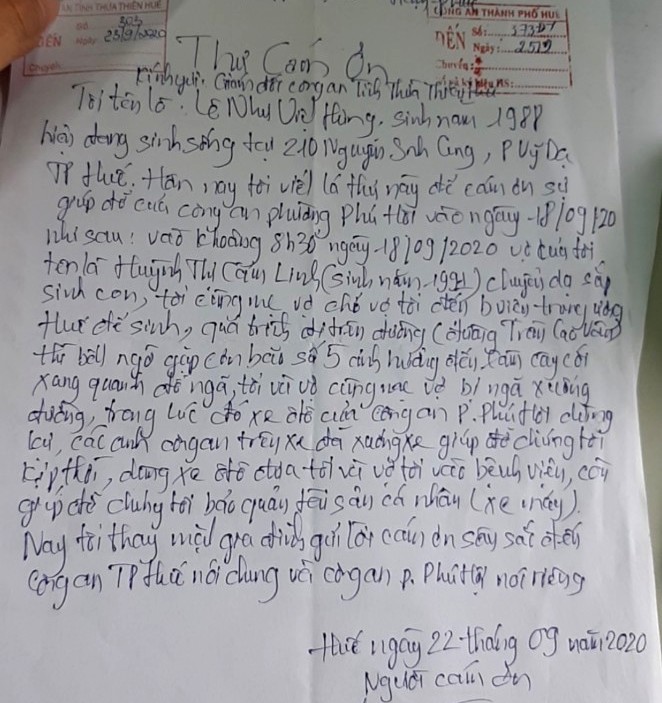 AN TỈNH THỪA THIÊN HUẾ
Số 303
ĐẾN Ngày 25/9/2020
Chuyển
CÔNG AN THÀNH PHỐ HUẾ
ĐẾN Số:
Ngày: 25/9
Chuyển:
Thư Cảm Ơn
Kính gửi: Giám đốc công an Tỉnh Thừa Thiên Huế
Tôi tên là: Lê Như Việt Hùng, sinh năm 1988
hiện đang sinh sống tại 210 Nguyễn Sinh Cung, P Vỹ Dạ
TP Huế. Hôm nay tôi viết lá thư này để cảm ơn sự
giúp đỡ của công an phường Phú Hội vào ngày 18/09/20
như sau: vào khoảng 8h30 ngày 18/09/2020 vợ của tôi
tên là Huỳnh Thị Cẩm Linh (sinh năm 1991) chuyển dạ sắp
sinh con, tôi cùng mẹ vợ chở vợ tôi đến bviện trung ương
Huế để sinh, quá trình đi trên đường (đường Trần Cao Vân)
thì bất ngờ gặp cơn bão số 5 ảnh hưởng đến, làm cây cối
xang quanh đổ ngã, tôi và vợ cùng mẹ vợ bị ngã xuống
đường, trong lúc đó xe ôtô của công an P. Phú Hội dừng
lại, các anh công an trên xe đã xuống xe giúp đỡ chúng tôi
kịp thời, dùng xe ôtô đưa tôi và vợ tôi vào bệnh viện, còn
giúp đỡ chúng tôi bảo quản tài sản cá nhân (xe máy).
Nay tôi thay mặt gia đình gửi lời cảm ơn sâu sắc đến
công an TP Huế nói chung và công an p. Phú Hội nói riêng
Huế ngày 22 tháng 09 năm 2020
Người cảm ơn